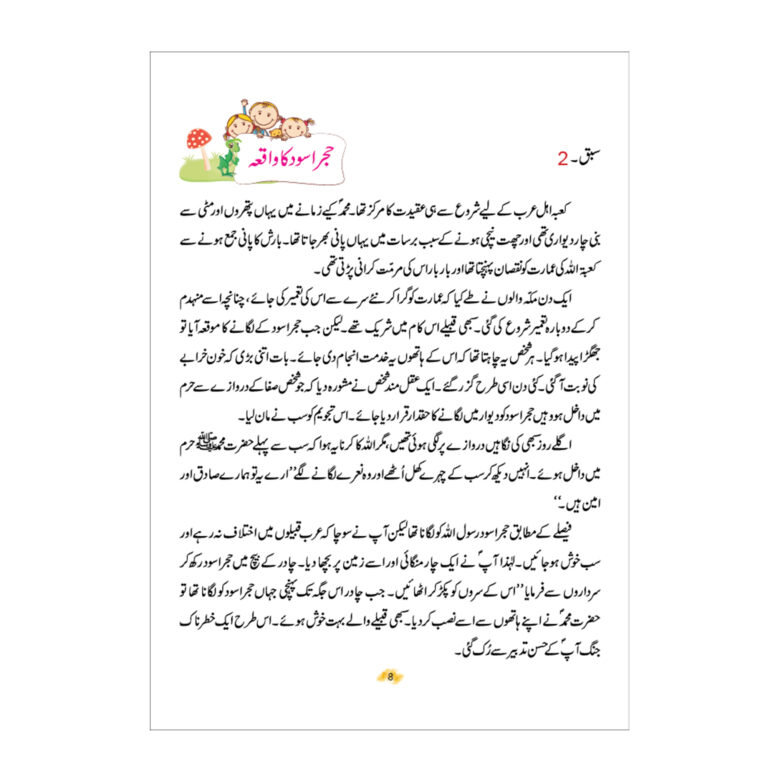 سبق۔ 2
حجر اسود کا واقعہ
کعبہ اہل عرب کے لیے شروع سے ہی عقیدت کا مرکز تھا۔ محمدؐ کیے زمانے میں یہاں پتھروں اور مٹی سے
بنی چار دیواری تھی اور چھت نیچی ہونے کے سبب برسات میں یہاں پانی بھر جاتا تھا۔ بارش کا پانی جمع ہونے سے
کعبۃ اللہ کی عمارت کو نقصان پہنچتا تھا اور بار بار اس کی مرمّت کرانی پڑتی تھی۔
ایک دن مکہّ والوں نے طے کیا کہ عمارت کو گرا کر نئے سرے سے اس کی تعمیر کی جائے، چنانچہ اسے منہدم
کر کے دوبارہ تعمیر شروع کی گئی۔ سبھی قبیلے اس کام میں شریک تھے۔ لیکن جب حجر اسود کے لگانے کا موقعہ آیا تو
جھگڑا پیدا ہوگیا۔ ہر شخص یہ چاہتا تھا کہ اس کے ہاتھوں یہ خدمت انجام دی جائے۔ بات اتنی بڑی کہ خون خرابے
کی نوبت آگئی۔ کئی دن اسی طرح گزر گئے۔ ایک عقل مند شخص نے مشورہ دیا کہ جو شخص صفا کے دروازے سے حرم
میں داخل ہو وہیں حجر اسود کو دیوار میں لگانے کا حقدار قرار دیا جائے۔ اس تجویم کو سب نے مان لیا۔
اگلے روز سبھی کی نگاہیں دروازے پر لگی ہوئی تھیں، مگر اللہ کا کرنا یہ ہوا کہ سب سے پہلے حضرت محمدﷺ حرم
میں داخل ہوئے۔ انہیں دیکھ کر سب کے چہرے کھل اُٹھے اور وہ نعرے لگانے لگے ’’ارے یہ تو ہمارے صادق اور
امین ہیں۔‘‘
فیصلے کے مطابق حجر اسود رسول اللہ کو لگانا تھا لیکن آپ نے سوچا کہ عرب قبیلوں میں اختلاف نہ رہے اور
سب خوش ہو جائیں۔ لہٰذا آپؐ نے ایک چار منگائی اور اسے زمین پر بچھا دیا۔ چادر کے بیچ میں حجر اسود رکھ کر
سرداروں سے فرمایا ’’اس کے سروں کو پکڑ کر اٹھائیں۔ جب چادر اس جگہ تک پہنچی جہاں حجر اسود کو لگانا تھا تو
حضرت محمدؐ نے اپنے ہاتھوں سے اسے نصب کر دیا۔ سبھی قبیلے والے بہت خوش ہوئے۔ اس طرح ایک خطرناک
جنگ آپؐ کے حسن تدبیر سے رُک گئی۔
8